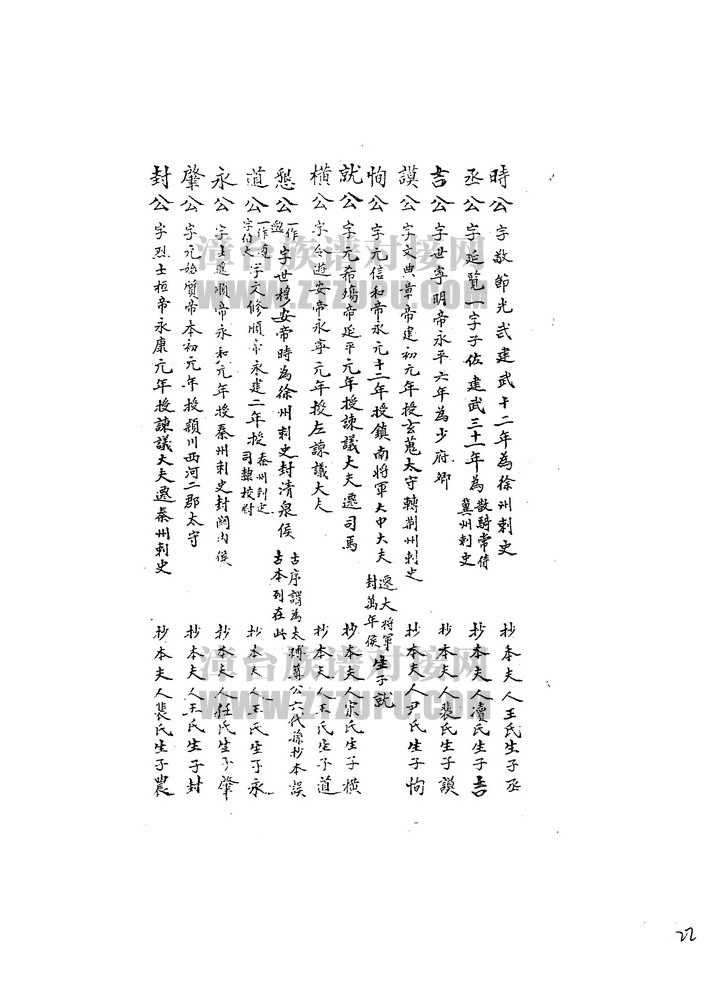 時公 字敬節光武建武十二年為徐州刺史 抄本夫人王氏生子丞
丞公 字延覽一字子佐建武三十一年為散騎常侍冀州刺史 抄本夫人凟氏生子吉
吉公 字世寧明帝永平六年為少府卿 抄本夫人裴氏生子謨
謨公 字文典章帝建初元年授玄菟太守轉荊州刺史 抄本夫人尹氏生子恂
恂公 字元信和帝永元十二年授鎮南將軍大中大夫遷大將軍封萬年侯 生子就
就公 字元希殤帝延平元年授諫議大夫遷司馬 抄本夫人宋氏生子橫
橫公 字令遊安帝永寧元年授左諫議大夫 抄本夫人王氏生子道
懇公 一作 字世穆安帝時為徐州刺史封清泉侯 古序謂為太傅尊公六代孫抄本誤古本列在此
道公 一作遵字伯 字文修順帝永建二年授秦州刺史司隸校尉 抄本夫人王氏生子永
永公 字士進順帝永和元年授秦州刺史封關內侯 抄本夫人任氏生子肇
肇公 字元始質帝本初元年授潁川西河二郡太守 抄本夫人王氏生子封
封公 字烈士桓帝永康元年授諫議大夫遷秦州刺史 抄本夫人裴氏生子農
漳台族谱对接网
www.ZTZUPU.COM
漳台族谱对接网
www.ZTZUPU.COM
22